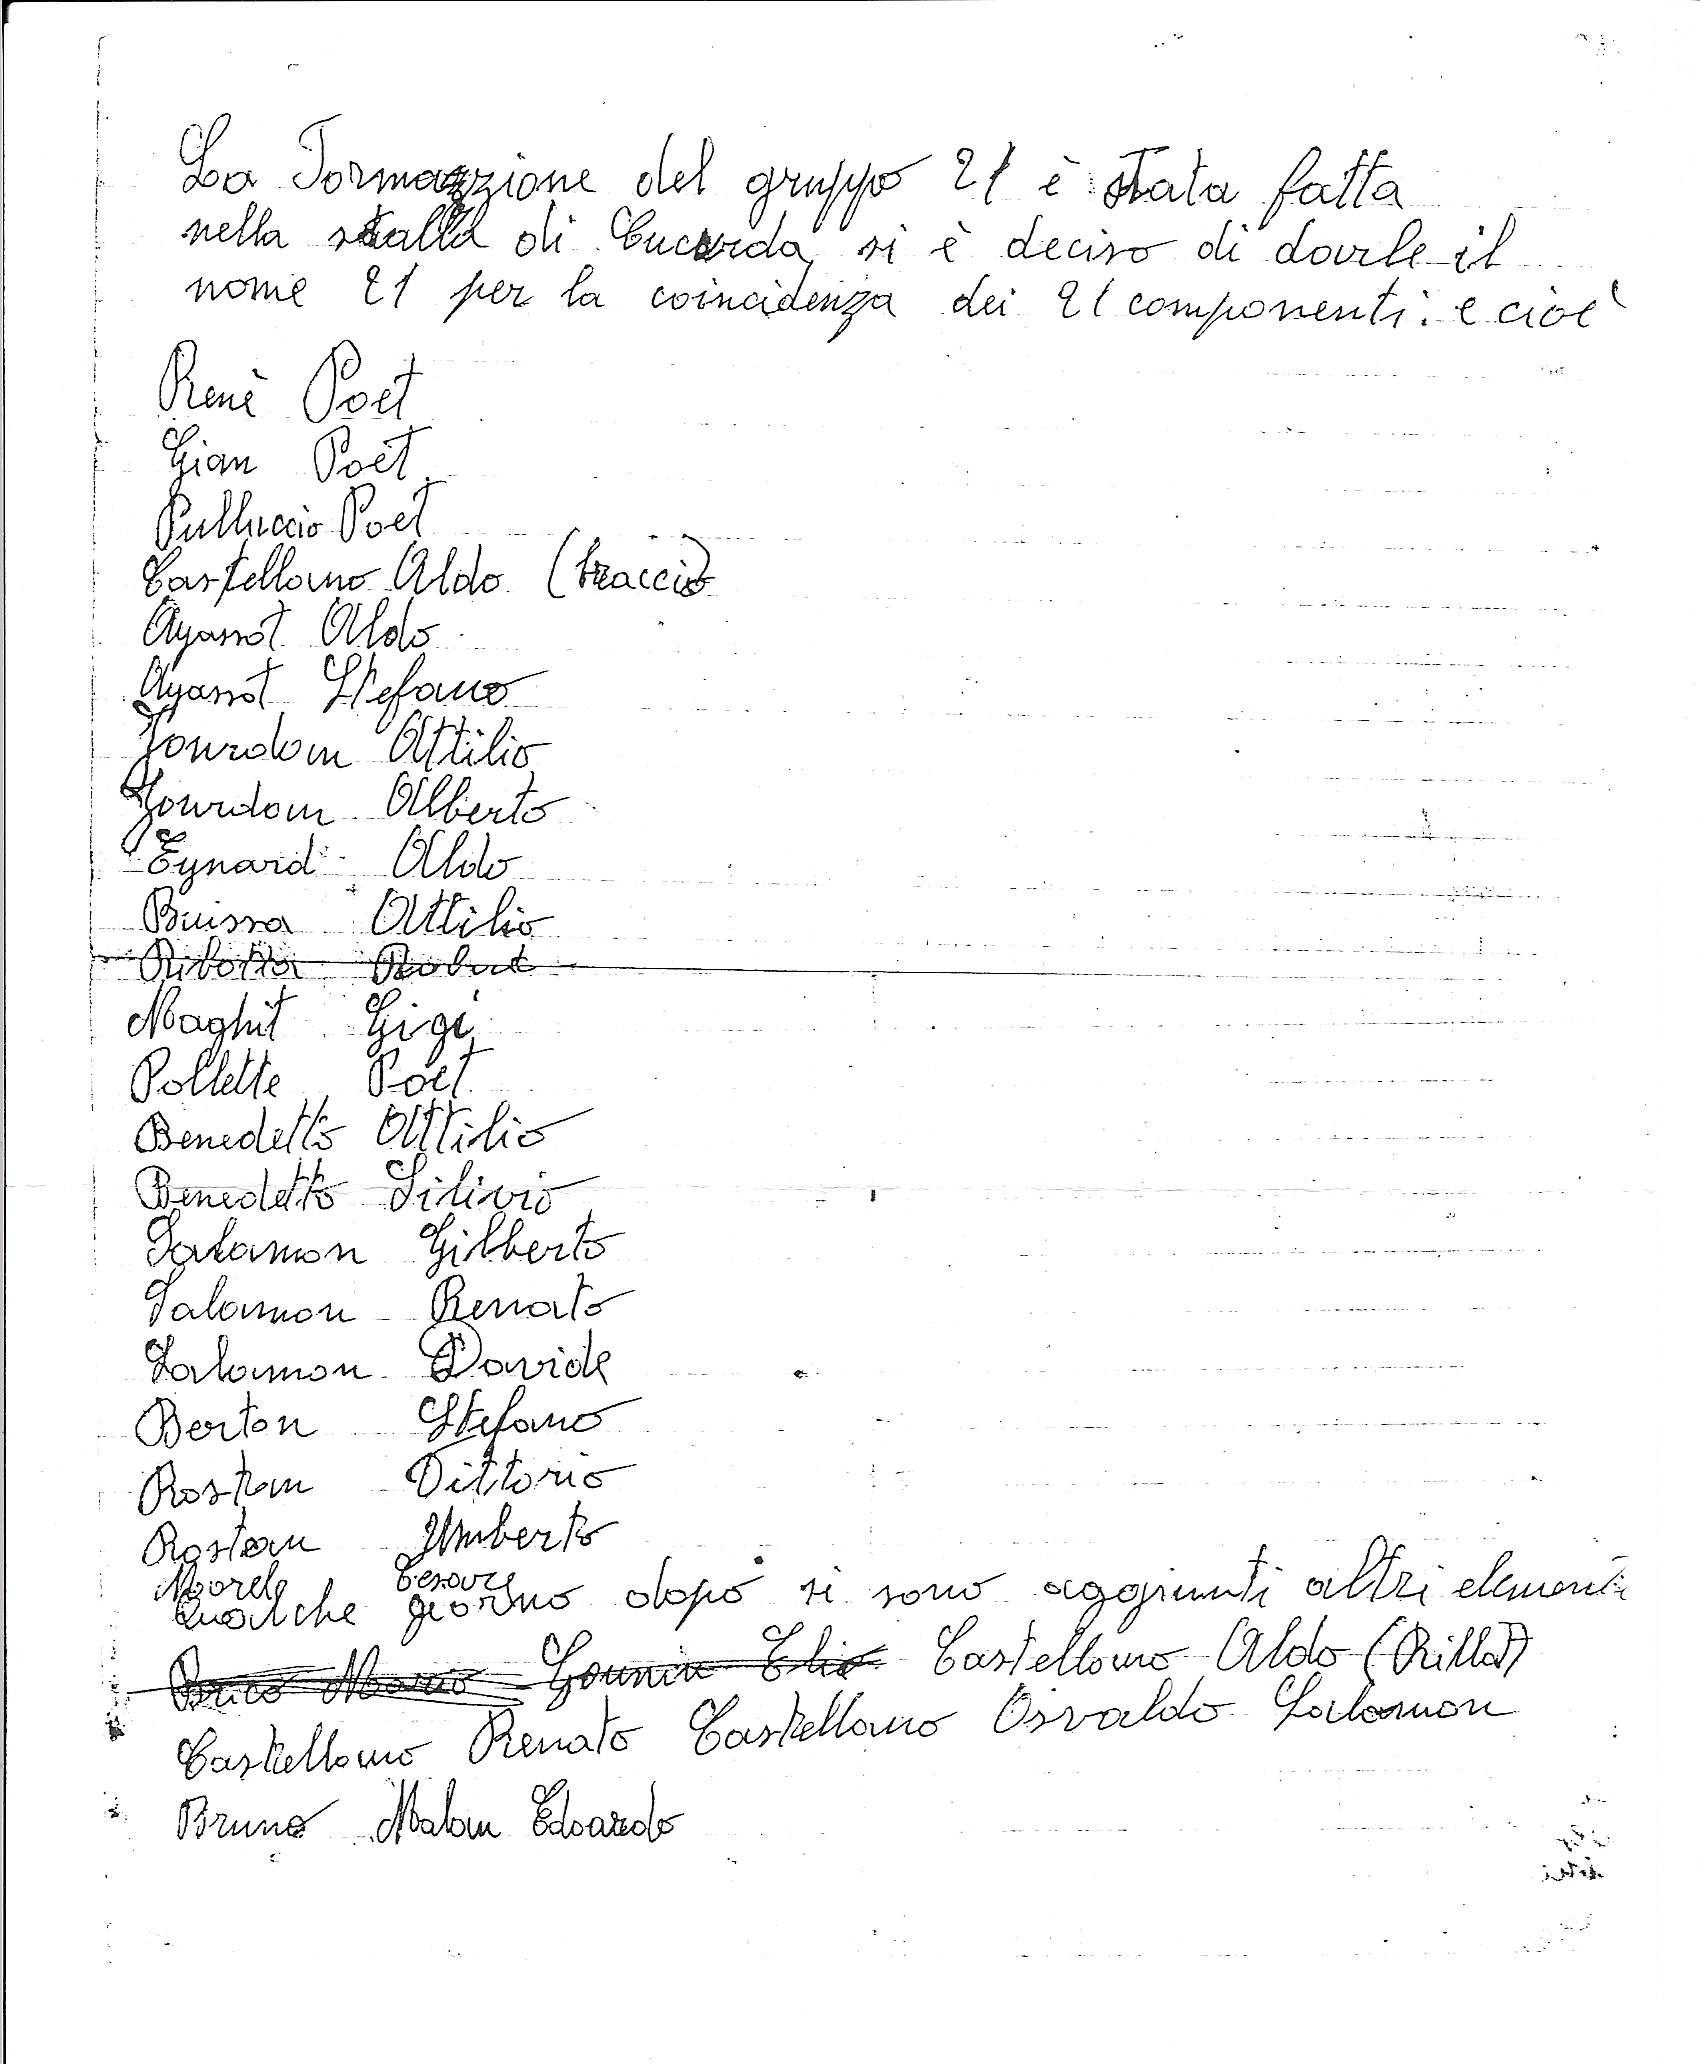 La Formazzione del gruppo 21 è stata fatta
nella stalla di Cucurda, si è deciso di darle il
nome 21 per la coincidenza dei 21 componenti: e cioè
Renè Poet
Gian Poët
Pulluccio Poet
Castellano Aldo (braccio)
Ayassot Aldo
Ayassot Stefano
Jourdan Attilio
Jourdan Alberto
Eynard Aldo
Buissa Attilio
Ribotta Robert
Maghit Gigi
Pollette Poet
Benedetto Attilio
Benedetto Silivio
Salamon Gilberto
Salamon Renato
Salamon Davide
Berton Stefano
Rostan Vittorio
Rostan Umberto
Morel Cesare
Qualche giorno dopo si sono aggiunti altri elementi
Brico Mario Gounin Elio Castellano Aldo (Rillo)
Castellano Renato Castellano Osvaldo Salamon
Bruno Malan Edoardo